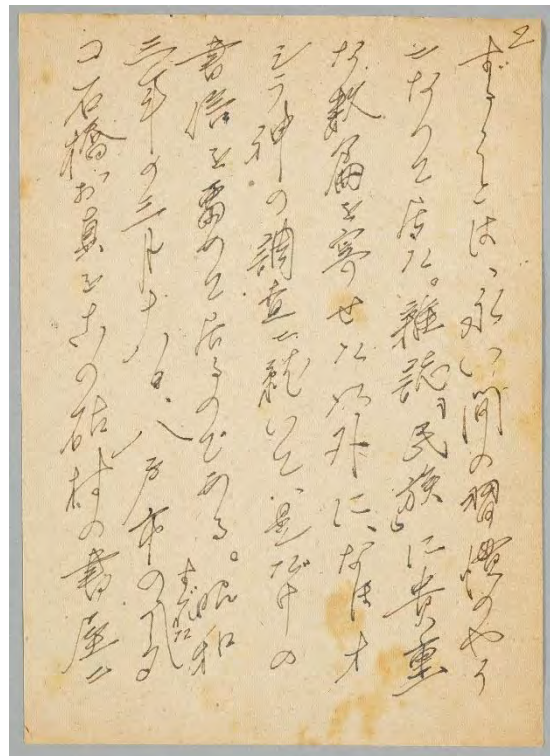 2
ずることは、永い間の習慣のやう
になつて居た。雑誌『民族』に貴重
な数篇を寄せた以外に、なほオ
シラ神の調査に就いて、是だけの
書信を留めて居るのである。昭和
三年の三月十八日、八戸市の
すぐれた
コ石橋お真を の砧村の書屋に